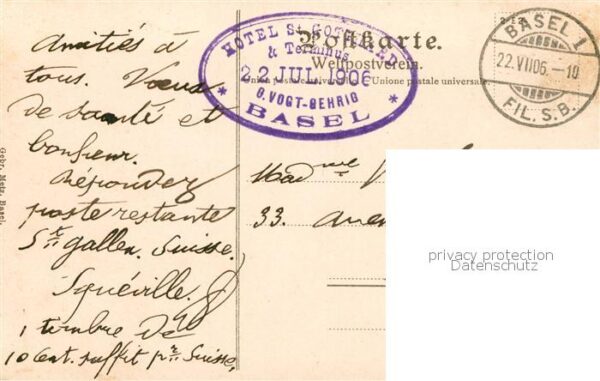 Postkarte.
Weltpostverein.
Union postale universelle. Unione postale universale.
HÔTEL St GOTTHARD
& Terminus
22 JUL. 1906
O. VOGT-GEHRIG
* BASEL *
BASEL 1
22.VII.06. — 10
FIL. S.B.
Amitiés à
tous. Voeux
de santé et
bonheur.
Répondez
poste restante
St gallen. Suisse.
1 timbre de
10 Cent. suffit pr Suisse.
Gebr. Metz, Basel.
Madme
33.
privacy protection
Datenschutz